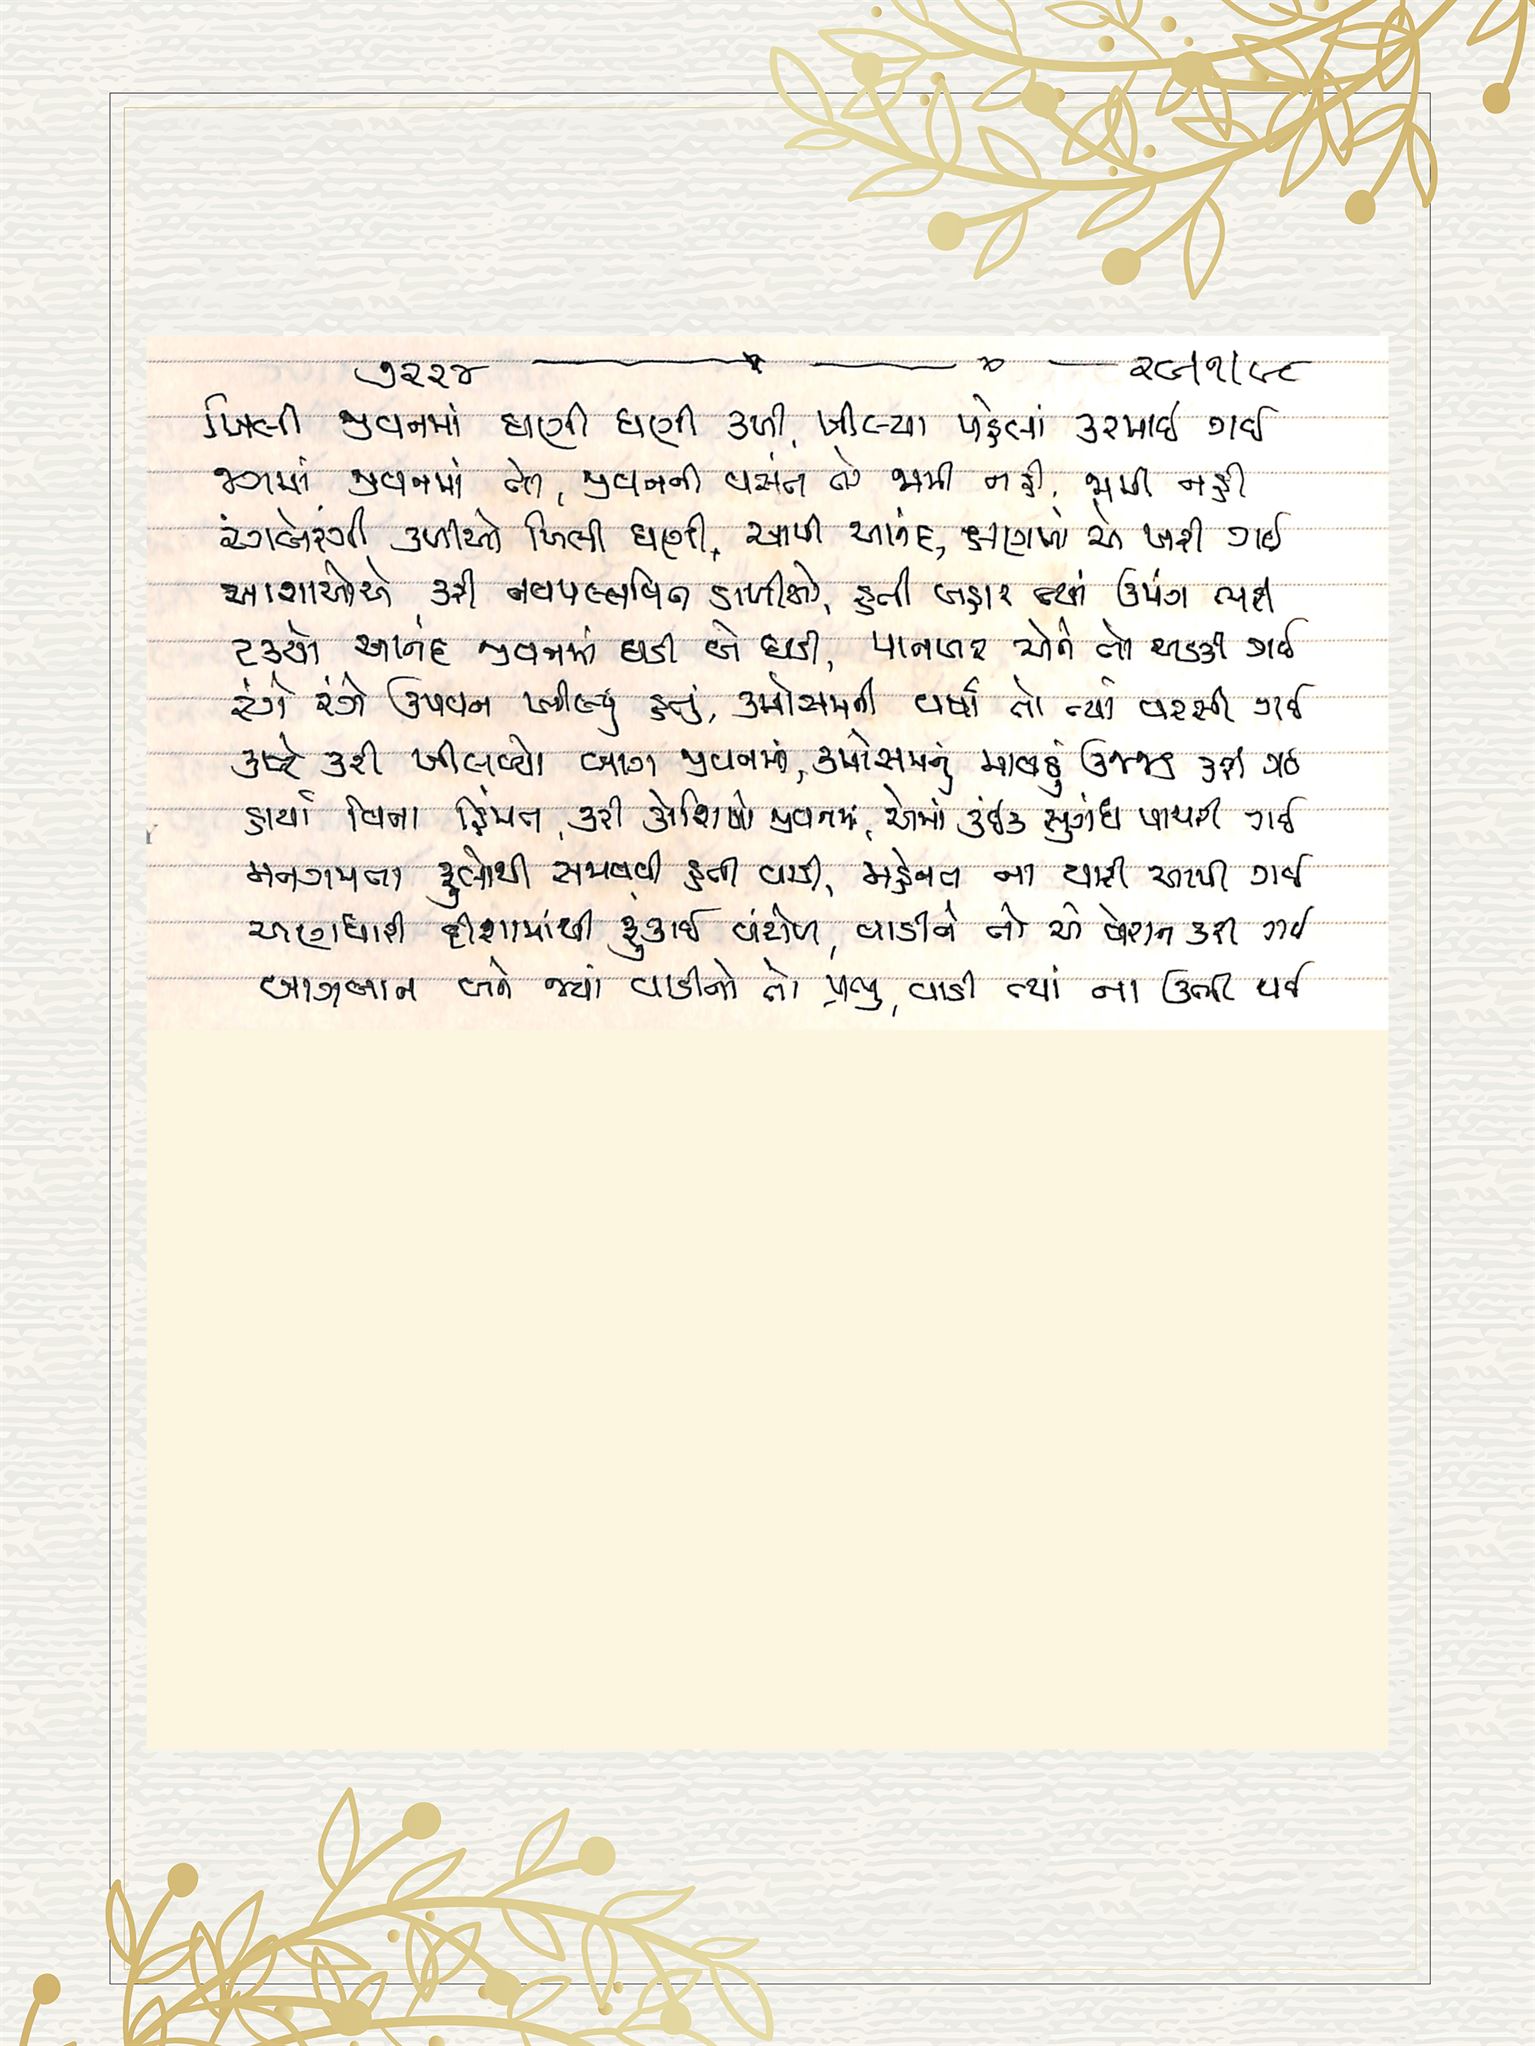 ૭૨૨૪ ૨૯/૧/૮૯
ખિલી જીવનમાં ઘણી ઘણી કળી, ખીલ્યા પહેલાં કરમાઈ ગઈ
જગમાં જીવનમાં તો, જીવનની વસંત તો જામી નહીં, જામી નહીં
રંગબેરંગી કળીઓ ખિલી ઘણી, આપી આનંદ, ક્ષણમાં એ ખરી ગઈ
આશાઓએ કરી નવપલ્લવિત ડાળીઓ, હતી બહાર ત્યાં ઉમંગ ભરી
ટક્યો આનંદ જીવનમાં ઘડી બે ઘડી, પાનખર એને તો અડકી ગઈ
રંગે રંગે ઉપવન ખીલ્યું હતું, કમોસમની વર્ષા તો ત્યાં વરસી ગઈ
કષ્ટે કરી ખીલવ્યો બાગ જીવનમાં, કમોસમનું માવઠું ઉજ્જડ કરી ગઈ
હાર્યા વિના હિંમત, કરી કોશિશો જીવનમાં, એમાં કંઈક સુગંધ પાથરી ગઈ
મનગમતા ફૂલોથી સજાવવી હતી વાડી, મહેનત ના યારી આપી ગઈ
અણધારી દીશામાંથી ફૂંકાઈ વંટોળ, વાડીને તો એ વેરાન કરી ગઈ
બાગબાન બને જ્યાં વાડીનો તો પ્રભુ, વાડી ત્યાં ના ઉભી થઈ